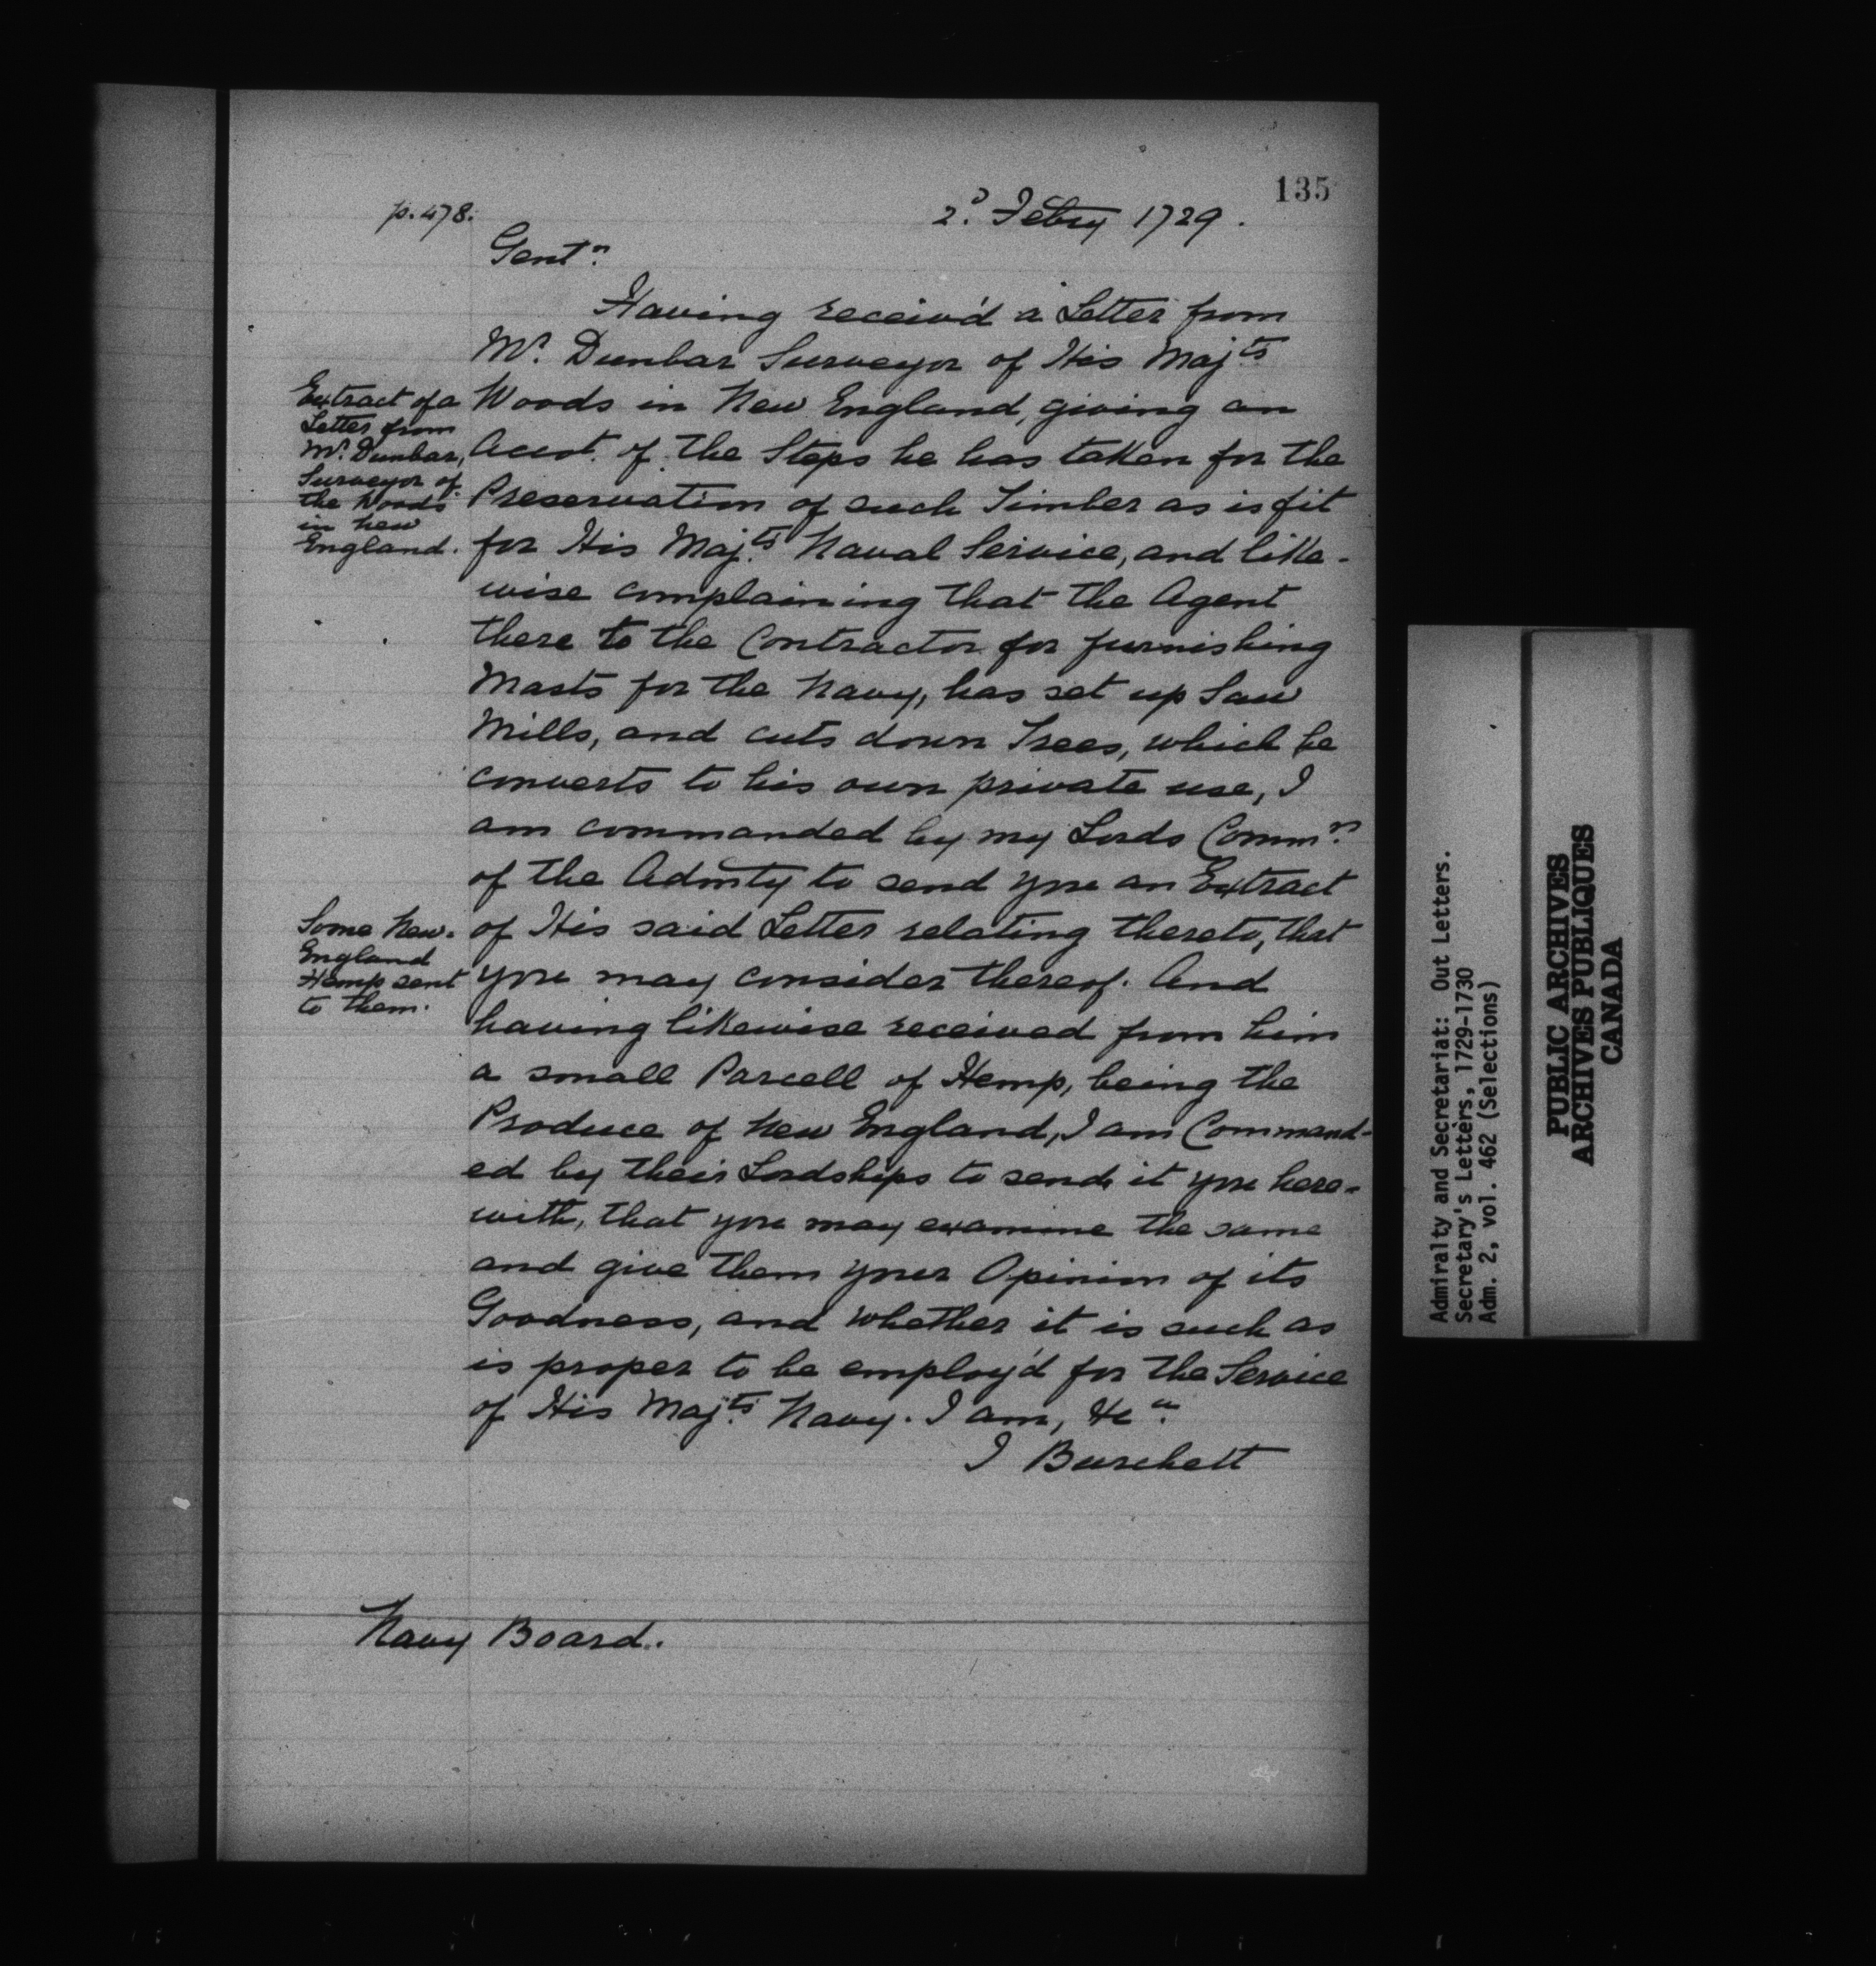 135
p. 478.
2d. Febry 1729.
Gentn.
Having receiv'd a Letter from
Mr. Dunbar Surveyor of His Majts
Woods in New England, giving an
Accot. of the Steps he has taken for the
Preservation of such Timber as is fit
for His Majts. Naval Service, and like-
wise complaining that the Agent
there to the Contractor for furnishing
Masts for the Navy, has set up Saw
Mills, and cuts down Trees, which he
converts to his own private use, I
am commanded by my Lords Commrs.
of the Admty to send you an Extract
of His said Letter relating thereto, that
you may consider thereof. And
having likewise received from him
a small Parcell of Hemp, being the
Produce of New England, I am Command-
ed by their Lordships to send it you here-
with, that you may examine the same
and give them your Opinion of its
Goodness, and whether it is such as
is proper to be employ'd for the Service
of His Majts. Navy. I am, &ca.
J Burchett
Extract of a
Letter from
Mr. Dunbar,
Surveyor of
the Woods
in New
England.
Some New-
England
Hemp sent
to them.
Navy Board.
Admiralty and Secretariat: Out Letters.
Secretary's Letters, 1729-1730
Adm. 2, vol. 462 (Selections)
PUBLIC ARCHIVES
ARCHIVES PUBLIQUES
CANADA